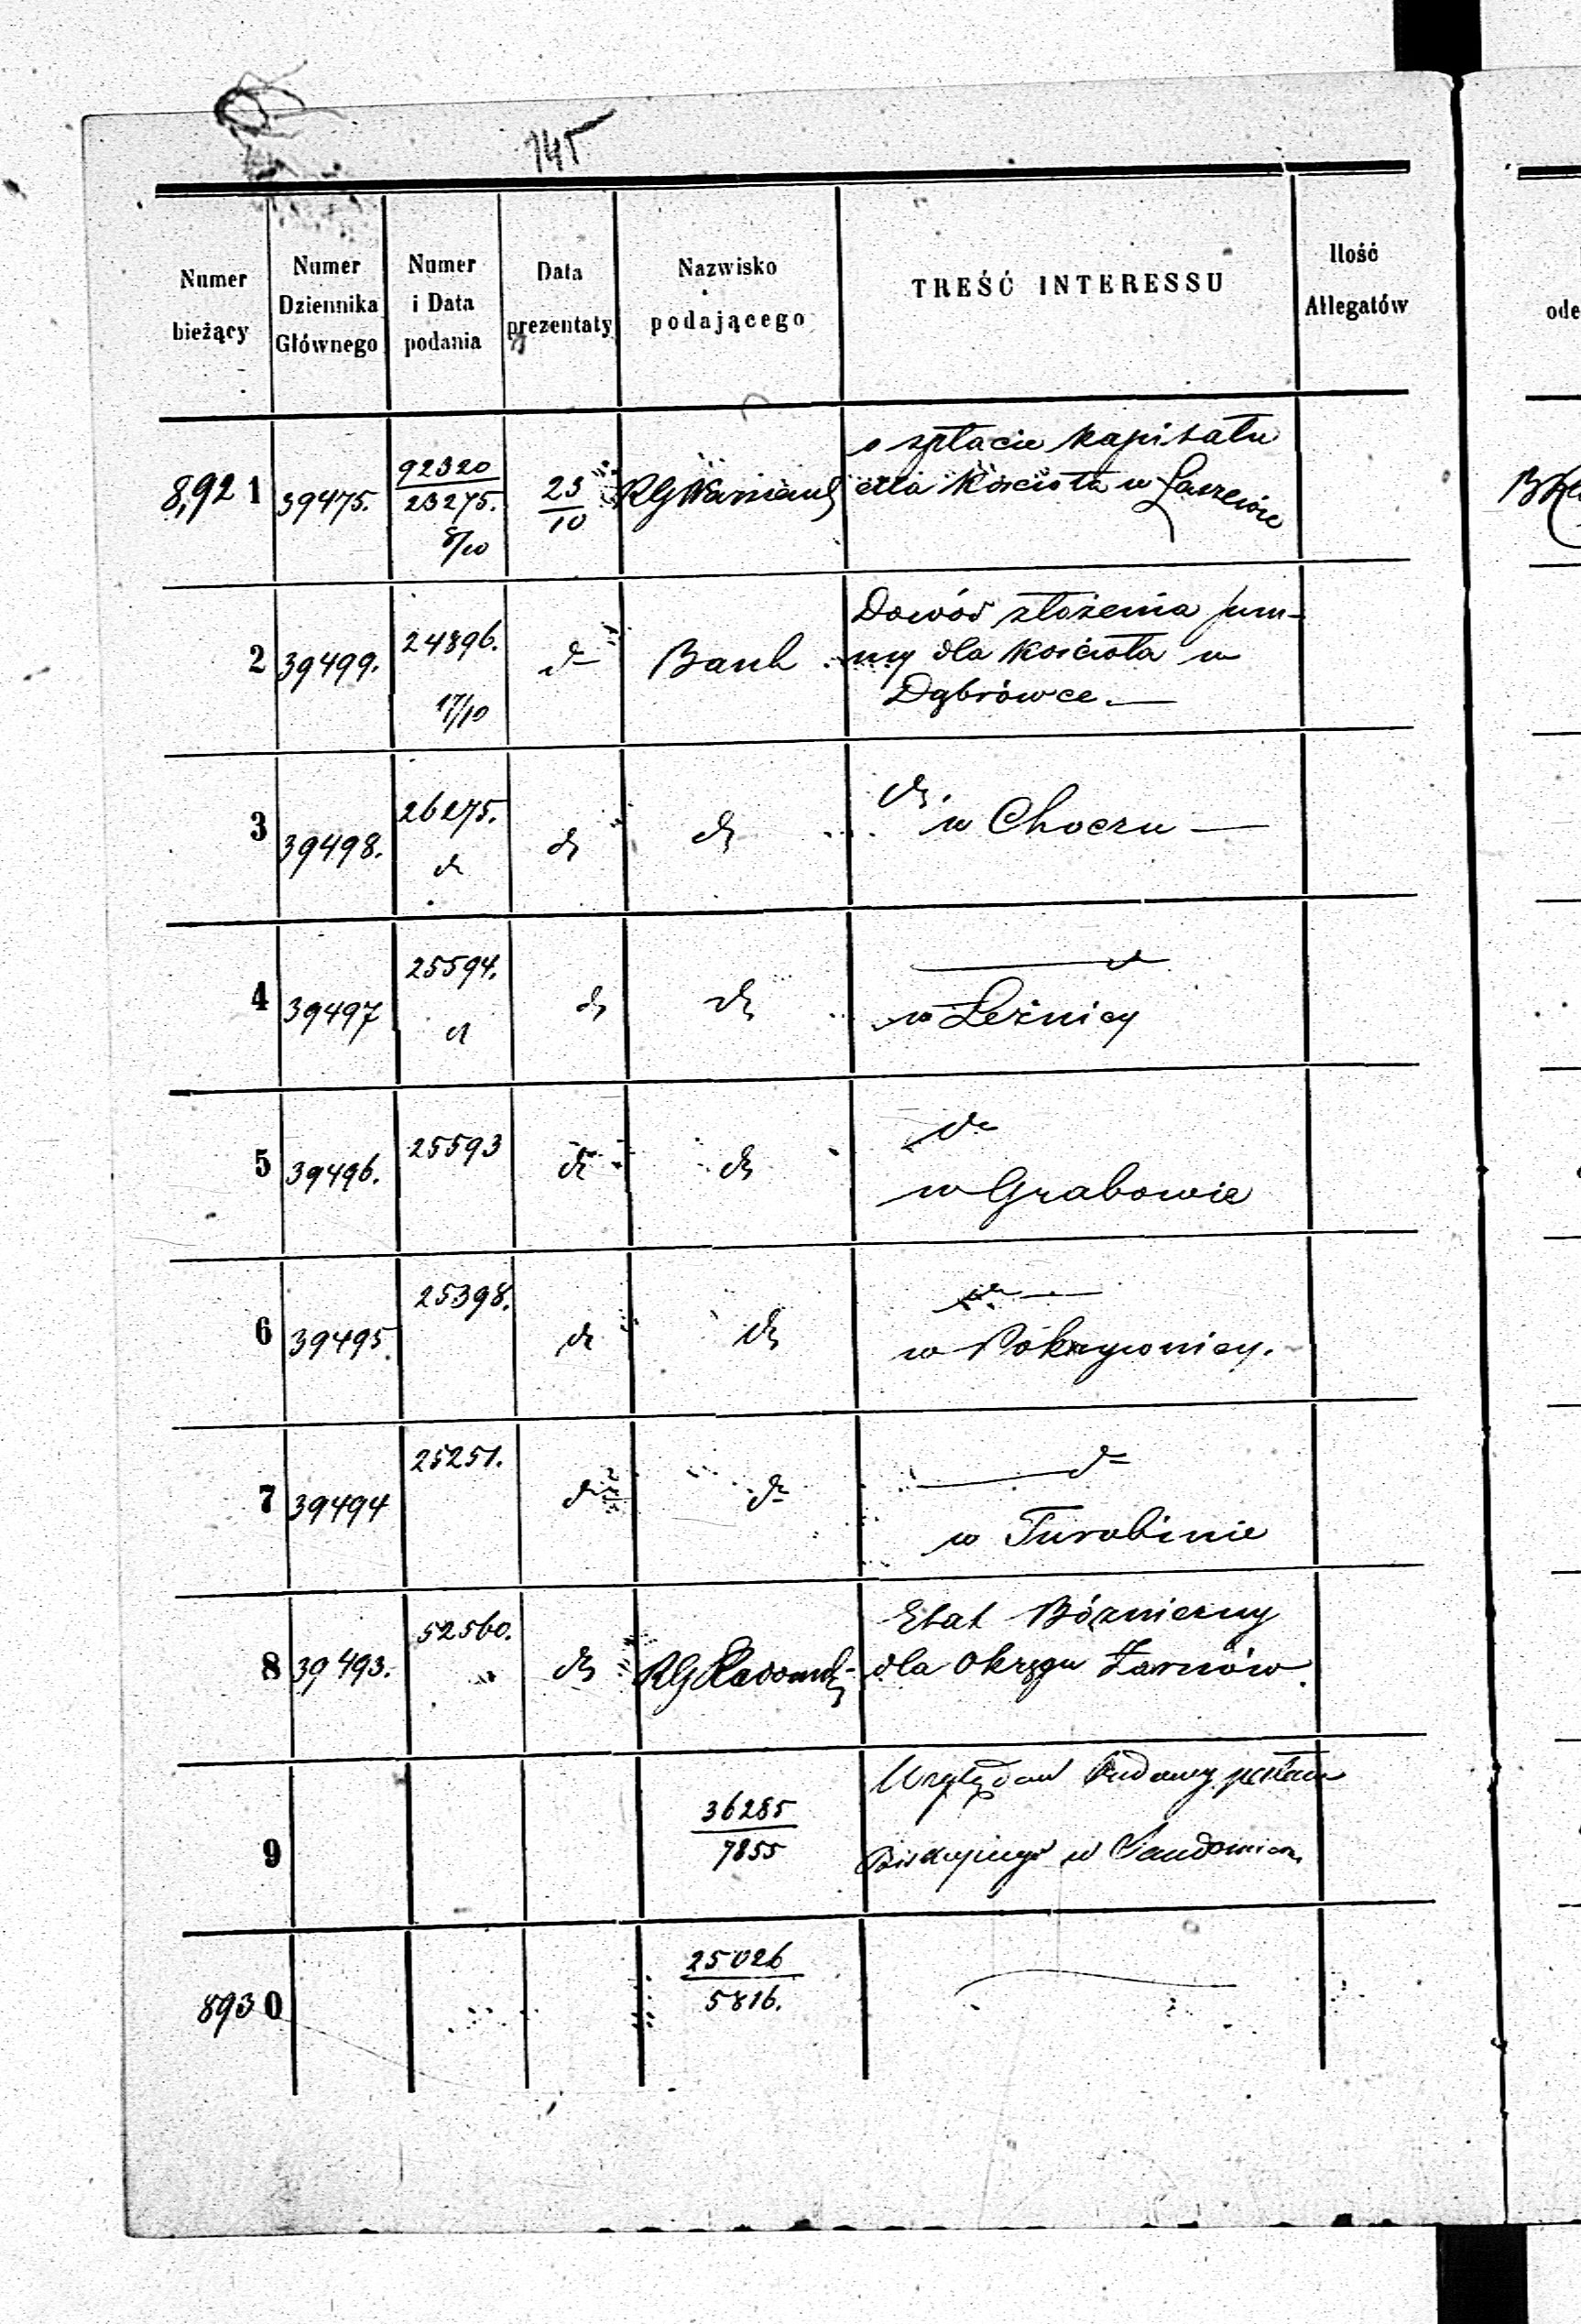 145
Numer bieżący
Numer Dziennika Głównego
Numer i Data podania
Data prezentaty
Nazwisko podającego
TREŚĆ INTERESSU
Ilość Allegatów
8,921 39475. 92320 / 23275. 8/10 23/10 RG Warszaws
o spłacie kapitału
dla Kościoła w
2 39499. 24896. 17/10 do Bank
Dowód złożenia sum-
my dla Kościoła w
Dąbrówce. —
3 39498. 26275. do do do
do.
w Choczu —
4 39497 25594. do do do
— do
w Leźnicy
5 39496. 25593 do do
do
w Grabowie
6 39495. 25398. do do
do —
w Pokrzywnicy.
7 39494 25251. do do
— do
w Turobinie
8 39493. 52560. " do RG Radoms
Etat Bóżniczny
dla Okręgu Żarnów.
9 36285 / 7855
Względem budowy pałacu
Biskupiego w Sandomierzu
8930 25026 / 5816. —
ode